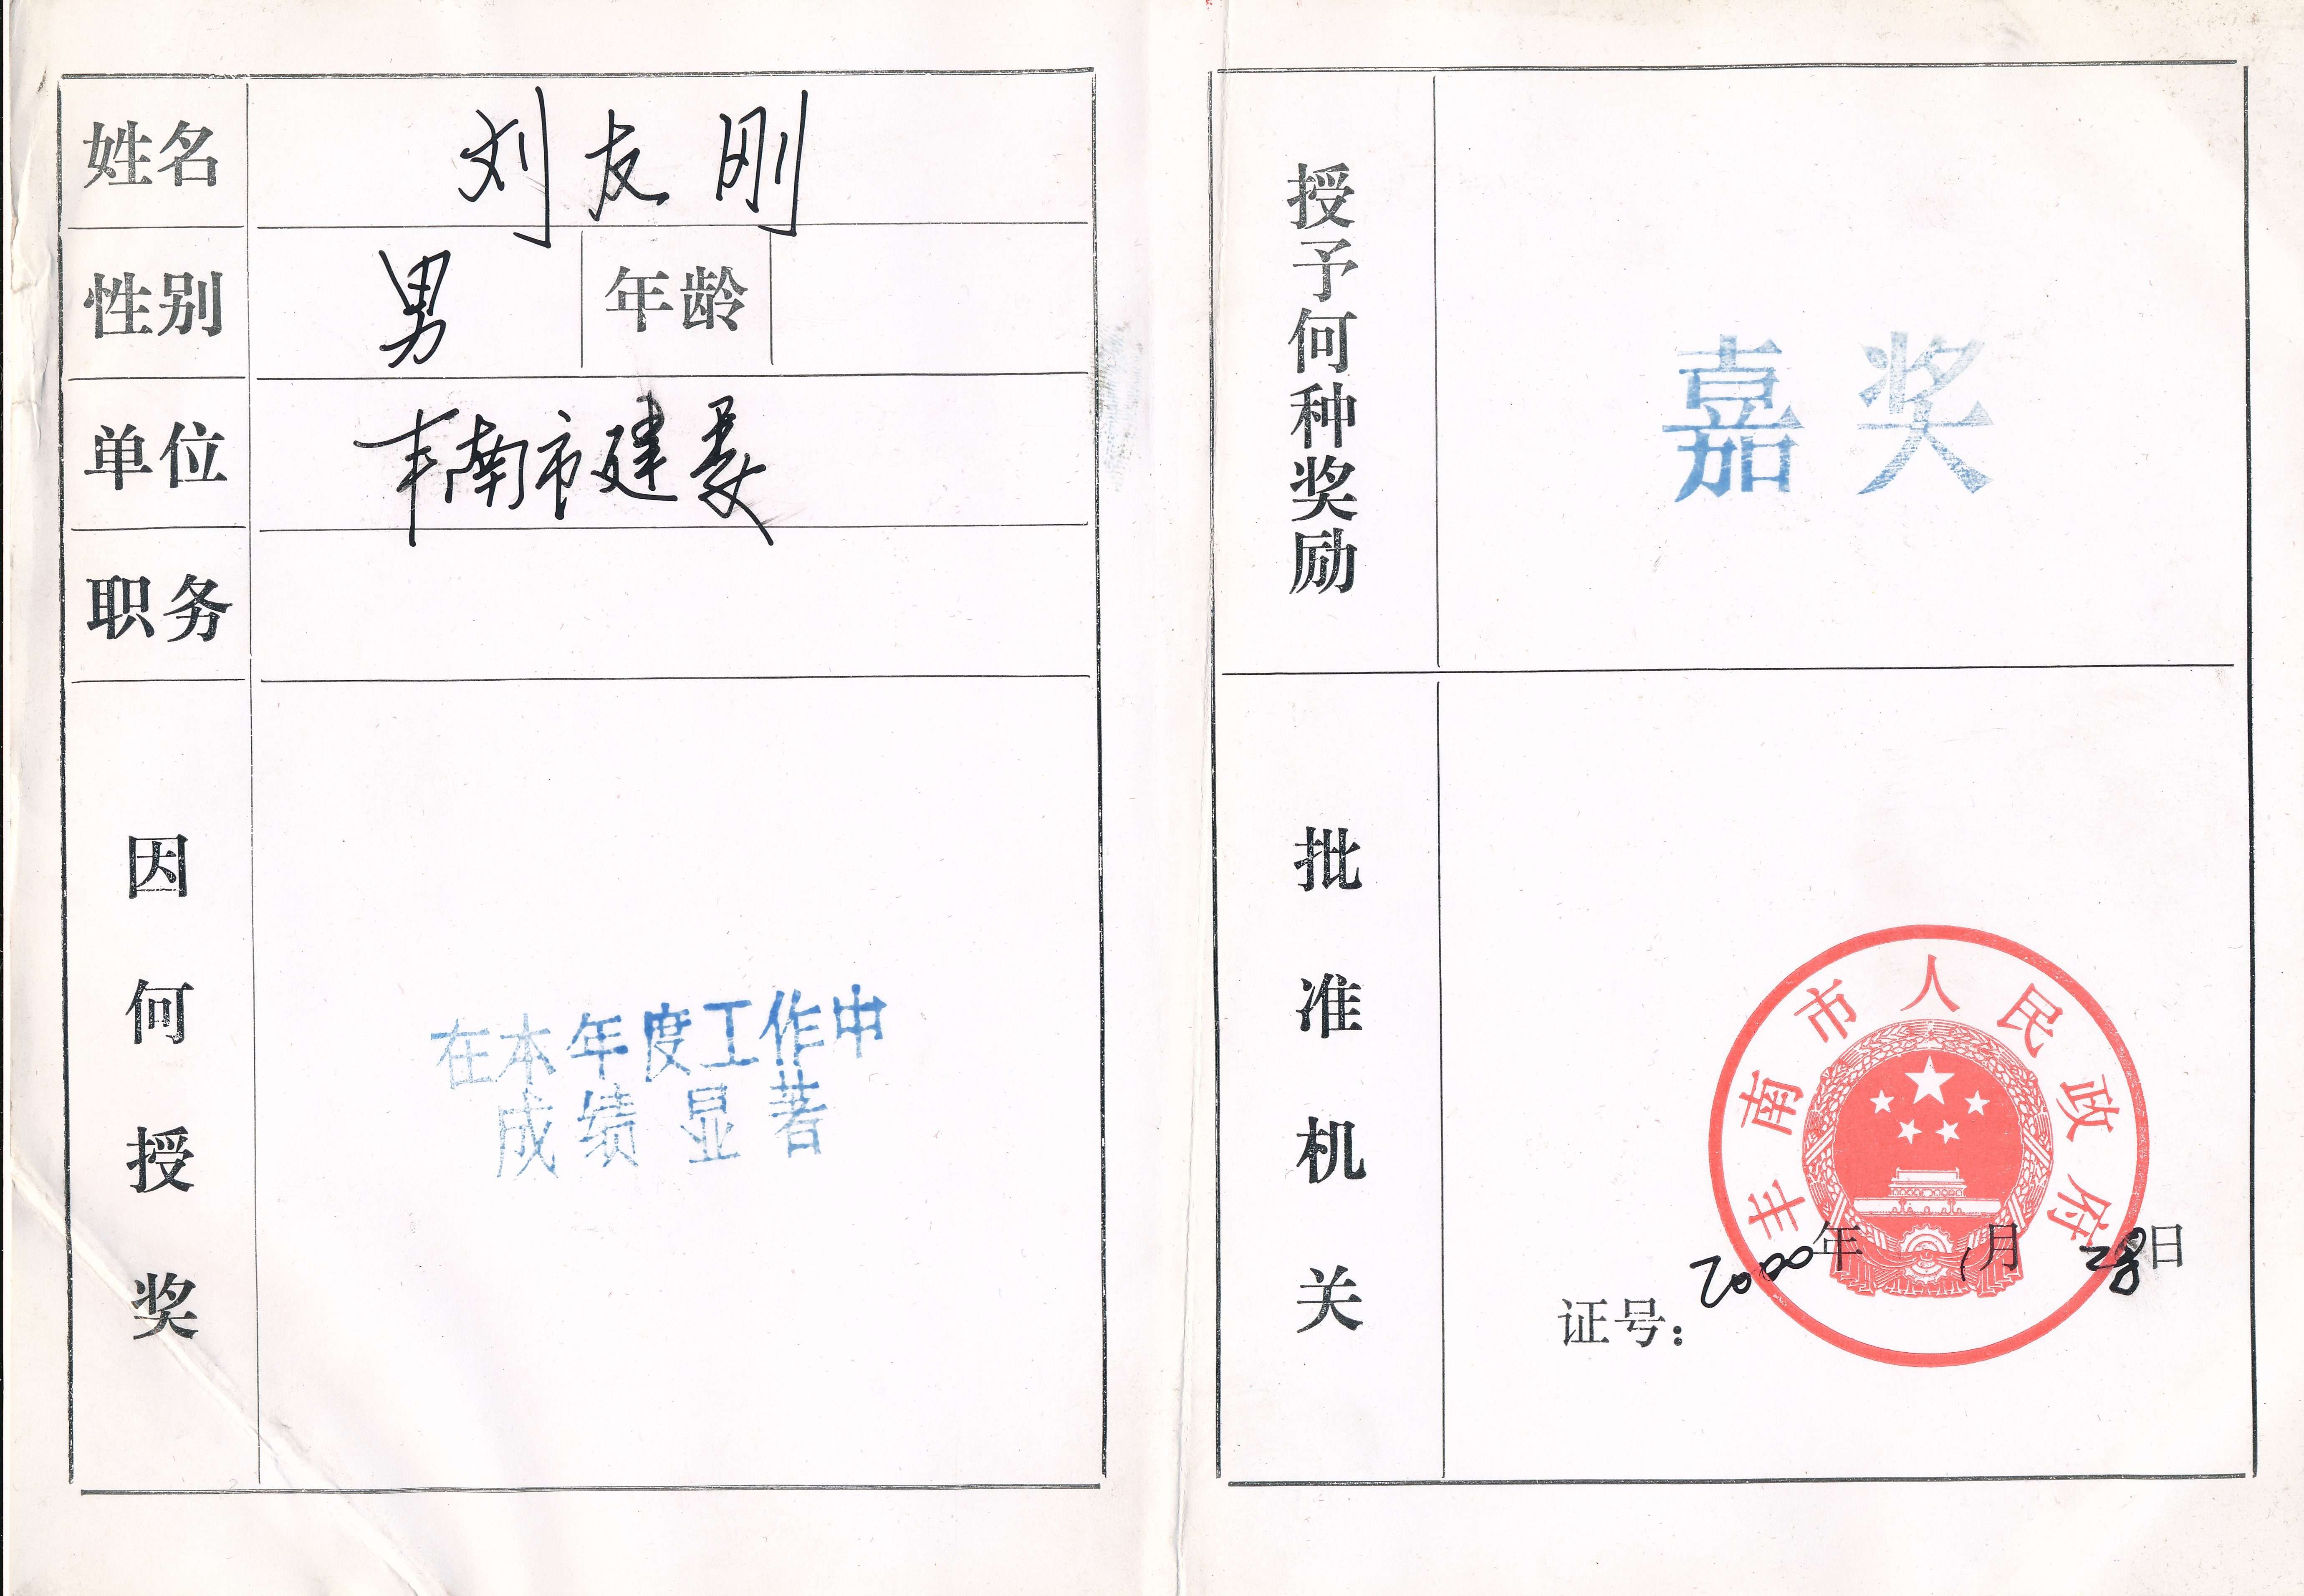 姓名 刘友刚
性别 男 年龄
单位 丰南市建委
职务
因何授奖
在本年度工作中
成绩显著
授予何种奖励
嘉奖
批准机关
丰南市人民政府
2000年1月28日
证号：